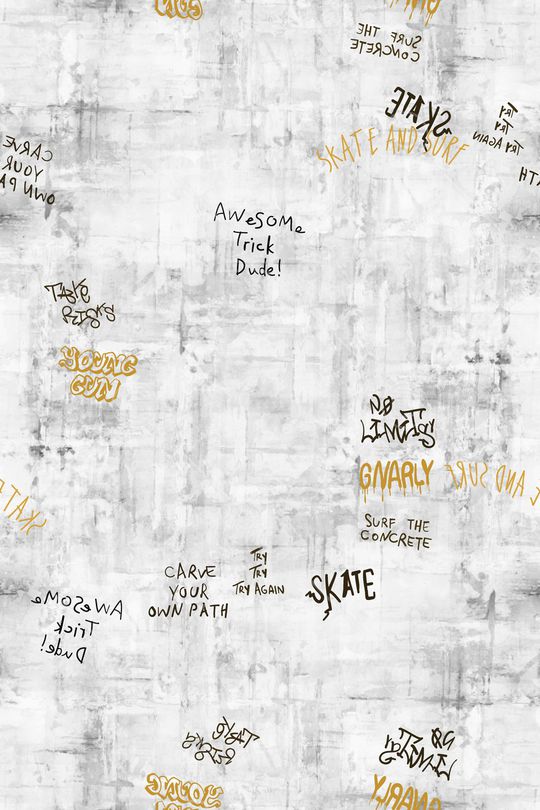 GUN
GNARLY
SURF THE
CONCRETE
SKATE
SKATE AND SURF
TRY
TRY
TRY AGAIN
CARVE
YOUR
OWN PA
ATH
AWeSOMe
Trick
Dude!
TAKE
RISKS
YOUNG
GUN
NO
LIMITS
GNARLY
E AND SURF
SKATE
SURF THE
CONCRETE
TRY
TRY
TRY AGAIN
CARVE
YOUR
OWN PATH
SKATE
AWeSOMe
Trick
Dude!
TAKE
RISKS
NO
LIMITS
YOUNG
GNARLY